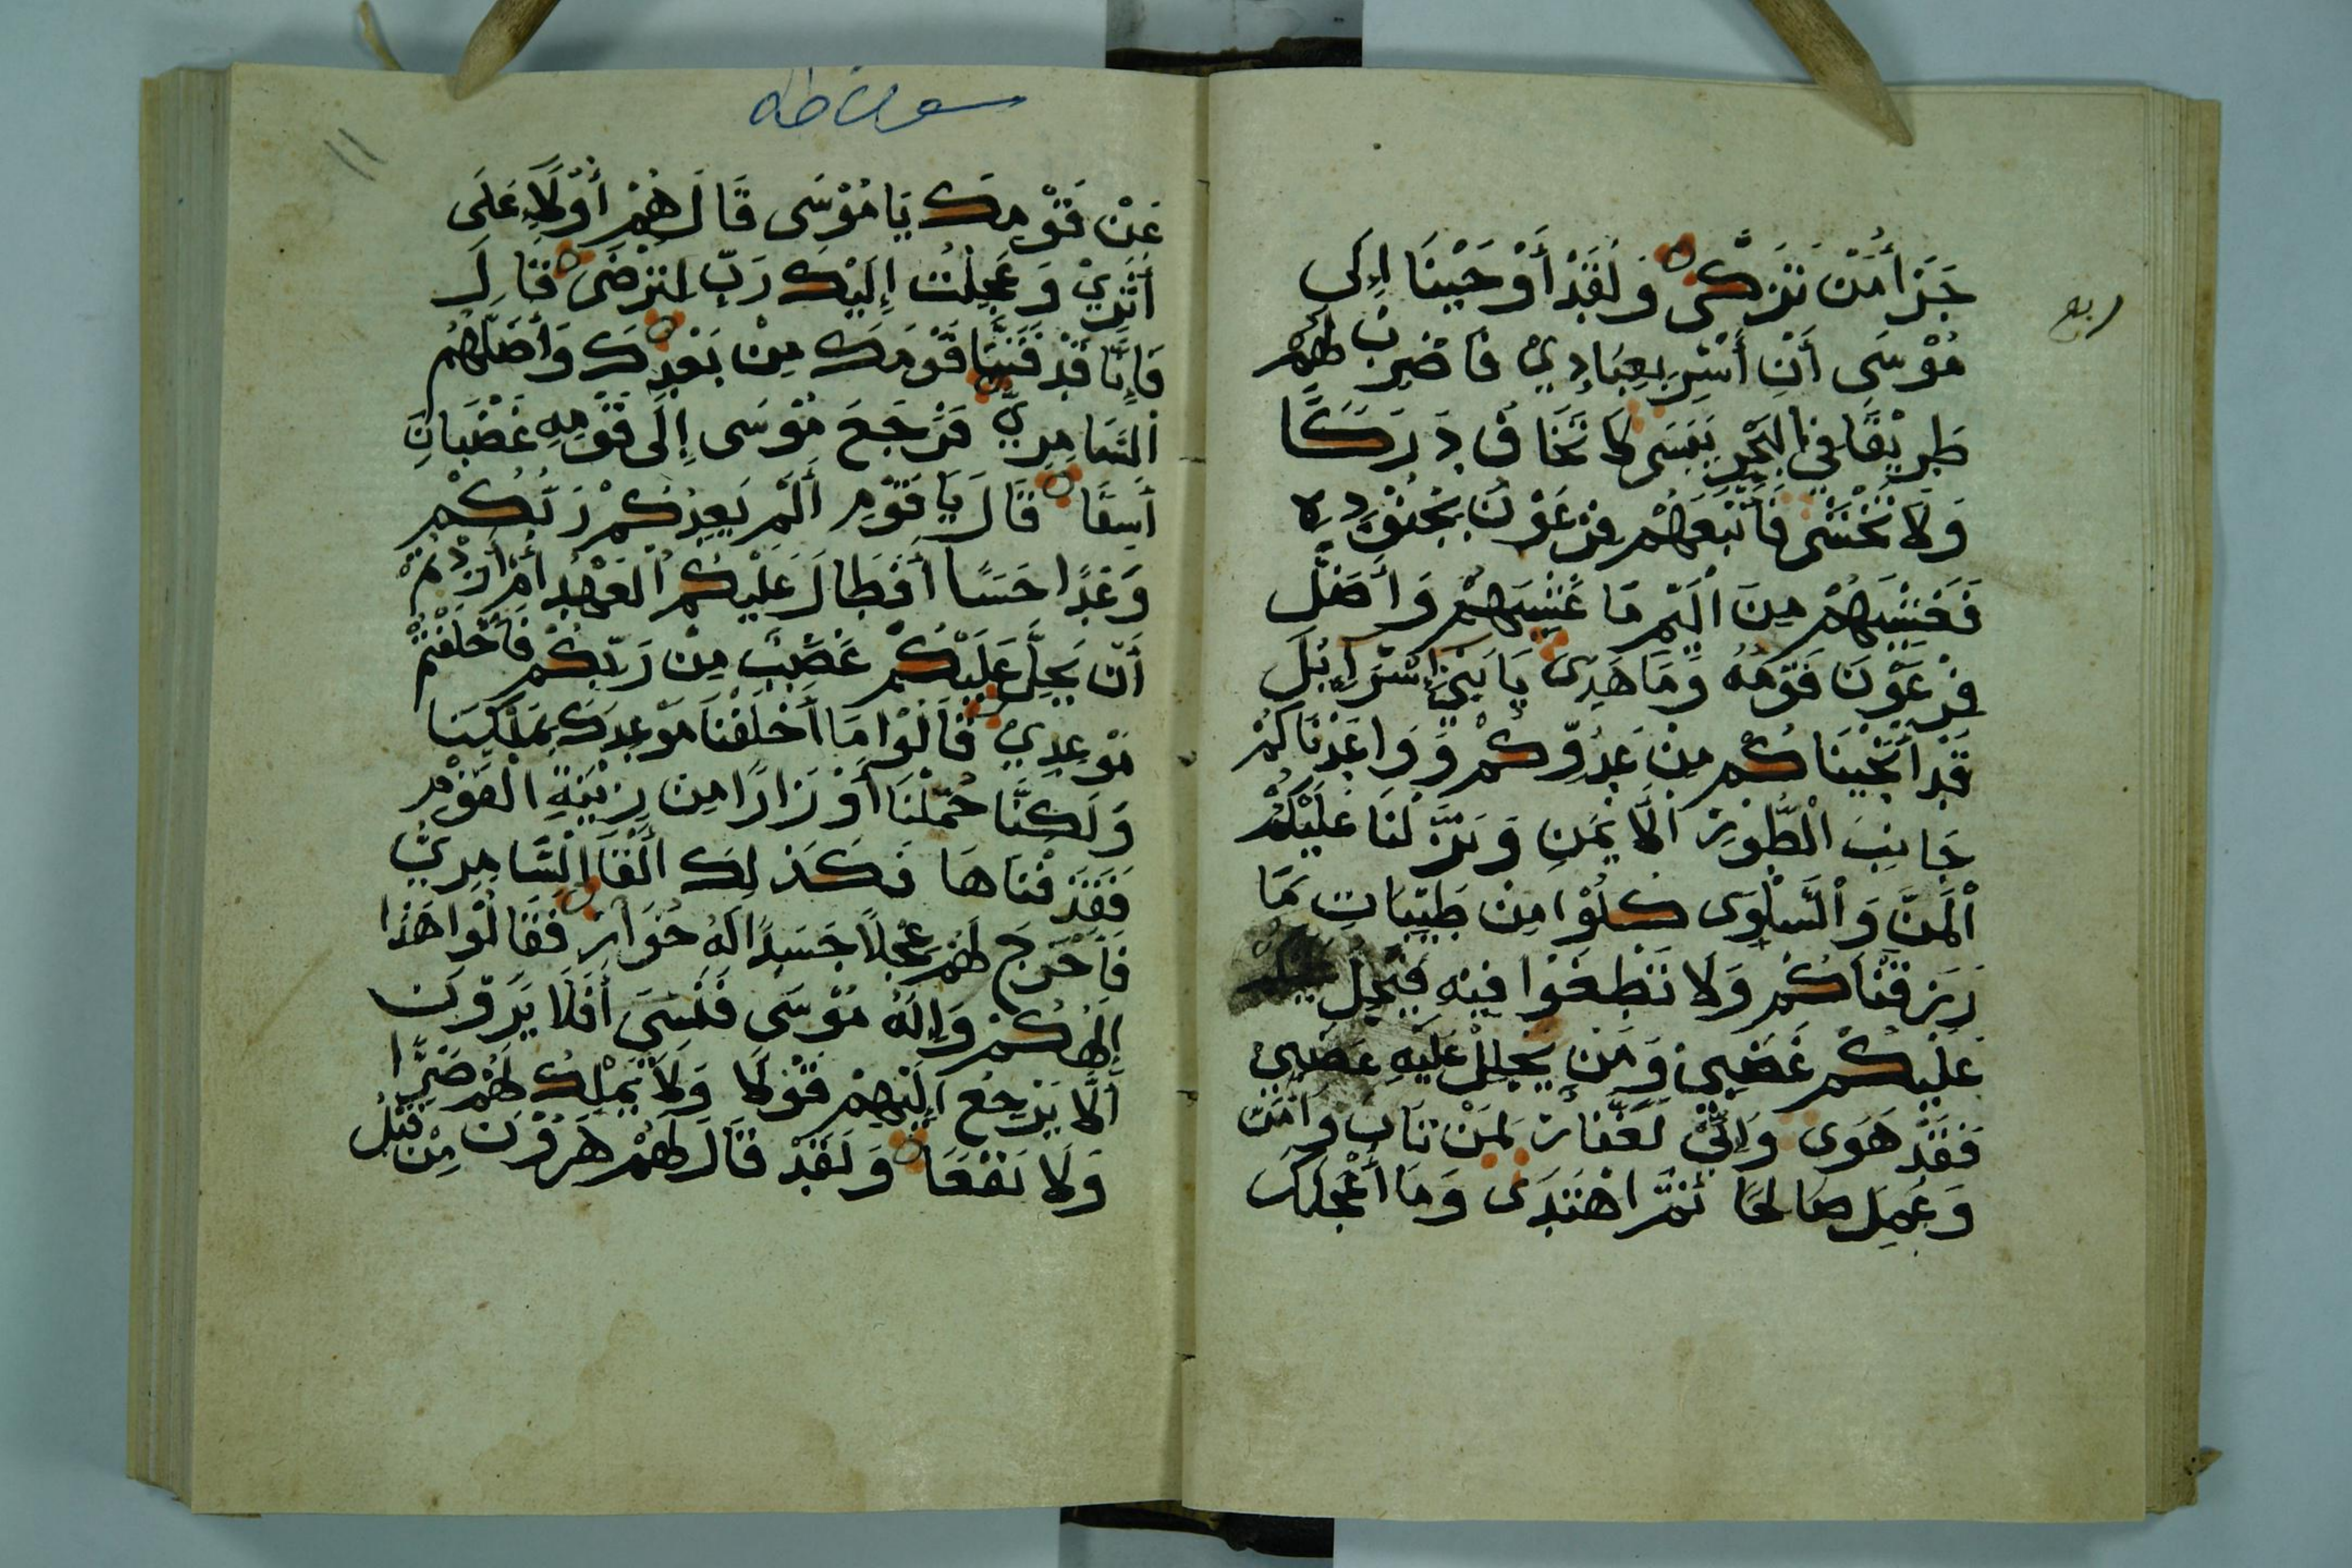 ربع
جَزَآ مَنْ تَزَكَّى وَلَقَدْ أَوْحَيْنَا إِلَى
مُوْسَى أَنْ أَسْرِ بِعِبَادِيْ فَاضْرِبْ لَهُمْ
طَرِيْقًا فِي الْبَحْرِ يَبَسَى لَا تَخَافُ دَرَكًا
وَلَا تَخْشَى فَأَتْبَعَهُمْ فِرْعَوْنُ بِجُنُوْدِهِ
فَغَشِيَهُمْ مِنَ الْيَمِّ مَا غَشِيَهُمْ وَأَضَلَّ
فِرْعَوْنُ قَوْمَهُ وَمَا هَدَى يَا بَنِيْ إِسْرَائِيلَ
قَدْ أَنْجَيْنَاكُمْ مِنْ عَدُوِّكُمْ وَوَاعَدْنَاكُمْ
جَانِبَ الْطُّوْرِ الْأَيْمَنِ وَنَزَّلْنَا عَلَيْكُمُ
الْمَنَّ وَالْسَّلْوَى كُلُوْا مِنْ طَيِّبَاتِ مَا
رَزَقْنَاكُمْ وَلَا تَطْغَوْا فِيْهِ فَيَحِلَّ
عَلَيْكُمْ غَضَبِيْ وَمَنْ يَحْلِلْ عَلَيْهِ غَضَبِيْ
فَقَدْ هَوَى وَإِنِّيْ لَغَفَّارٌ لِمَنْ تَابَ وَآمَنَ
وَعَمِلَ صَالِحًا ثُمَّ اهْتَدَى وَمَا أَعْجَلَكَ
سورة طه
١١
عَنْ قَوْمِكَ يَا مُوْسَى قَالَ هُمْ أُوْلَاءِ عَلَى
أَثَرِيْ وَعَجِلْتُ إِلَيْكَ رَبِّ لِتَرْضَى قَالَ
فَإِنَّا قَدْ فَتَنَّا قَوْمَكَ مِنْ بَعْدِكَ وَأَضَلَّهُمُ
الْسَّامِرِيُّ فَرَجَعَ مُوْسَى إِلَى قَوْمِهِ غَضْبَانَ
أَسِفًا قَالَ يَا قَوْمِ أَلَمْ يَعِدْكُمْ رَبُّكُمْ
وَعْدًا حَسَنًا أَفَطَالَ عَلَيْكُمُ الْعَهْدُ أَمْ أَرَدْتُمْ
أَنْ يَحِلَّ عَلَيْكُمْ غَضَبٌ مِنْ رَبِّكُمْ فَأَخْلَفْتُمْ
مَوْعِدِيْ قَالُوْا مَا أَخْلَفْنَا مَوْعِدَكَ بِمَلْكِنَا
وَلَكِنَّا حُمِّلْنَا أَوْزَارًا مِنْ زِيْنَةِ الْقَوْمِ
فَقَذَفْنَاهَا فَكَذَلِكَ أَلْقَا الْسَّامِرِيُّ
فَأَخْرَجَ لَهُمْ عِجْلًا جَسَدًا لَهُ خُوَارٌ فَقَالُوْا هَذَا
إِلَهُكُمْ وَإِلَهُ مُوْسَى فَنَسِيَ أَفَلَا يَرَوْنَ
أَلَّا يَرْجِعُ إِلَيْهِمْ قَوْلًا وَلَا يَمْلِكُ لَهُمْ ضَرًّا
وَلَا نَفْعًا وَلَقَدْ قَالَ لَهُمْ هَرُوْنُ مِنْ قَبْلُ